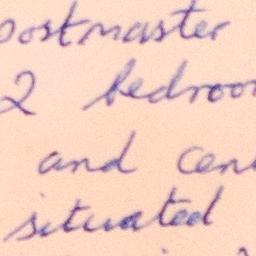 postmaster
2 bedroo
and cen
situated